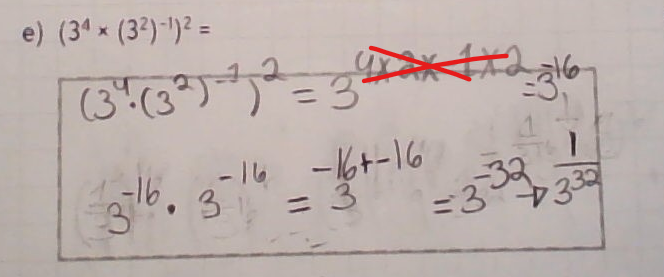 e) (3⁴ × (3²)⁻¹)² =
(3⁴·(3²)⁻¹)² = 3⁴ˣ²ˣ⁻¹ˣ² = 3⁻¹⁶
3⁻¹⁶ · 3⁻¹⁶ = 3⁻¹⁶⁺⁻¹⁶ = 3⁻³² → 1/3³²